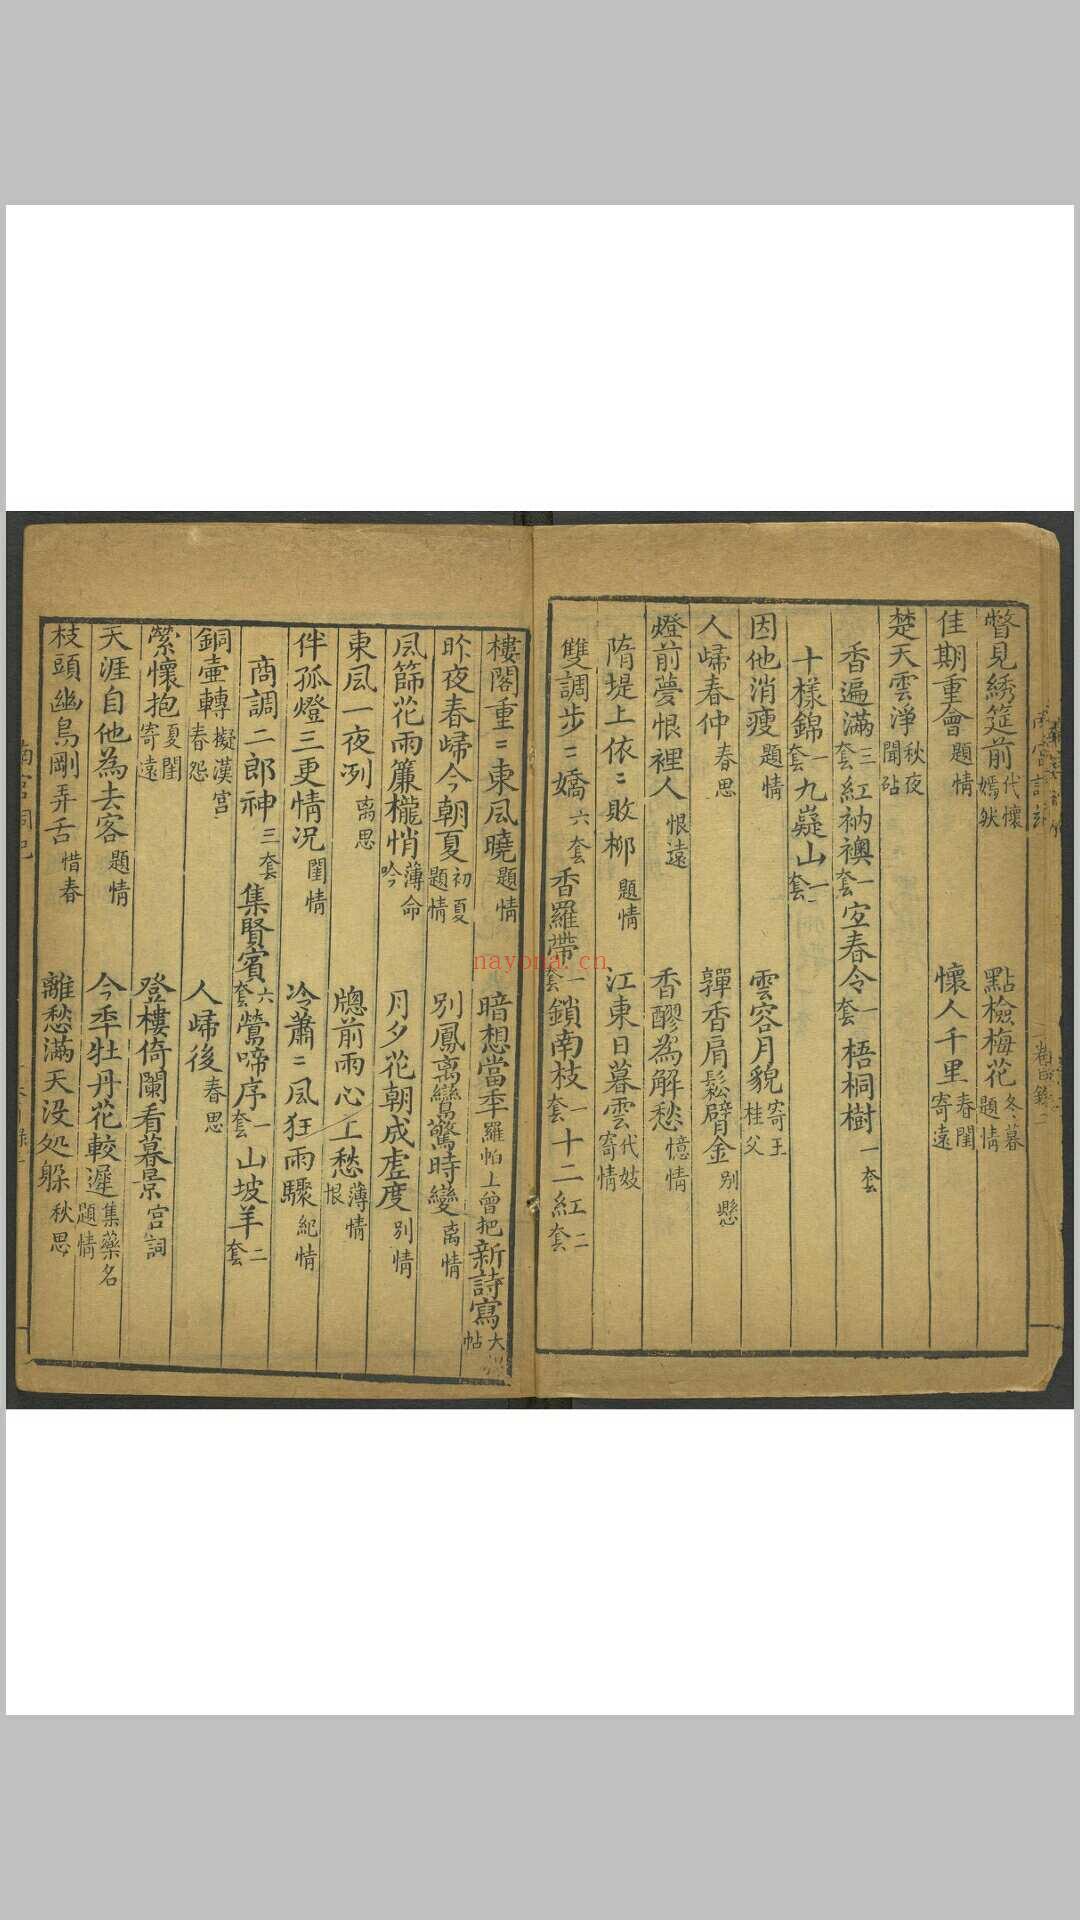 瞥見綉筵前 代懷嫣然 點檢梅花 冬暮題情
佳期重會 題情 懷人千里 春閨寄遠
楚天雲淨 秋夜聞砧
香遍滿 三套 紅衲襖 一套 宜春令 一套 梧桐樹 一套
十樣錦 一套 九嶷山 一套
因他消瘦 題情 雲容月貌 寄王桂父
人歸春仲 春思 嚲香肩鬆臂金 別懸
燈前夢恨裡人 恨遠 香醪為解愁 憶情
隋堤上依〻敗柳 題情 江東日暮雲 代妓寄情
雙調步〻嬌 六套 香羅帶 一套 鎖南枝 一套 十二紅 二套
樓閣重〻東風曉 題情 暗想當年羅帕上曾把新詩寫 大帖
昨夜春歸今朝夏 初夏題情 別鳳離鸞驚時變 离情
風篩花雨簾櫳悄 薄命吟 月夕花朝成虛度 別情
東風一夜冽 离思 牕前雨心上愁 薄情恨
伴孤燈三更情況 閨情 冷蕭〻風狂雨驟 紀情
商調二郎神 三套 集賢賓 六套 鶯啼序 一套 山坡羊 二套
銅壺轉 擬漢宮春怨 人歸後 春思
縈懷抱 夏閨寄遠 登樓倚闌看暮景 宮詞
天涯自他為去客 題情 今年牡丹花較遲 集藥名題情
枝頭幽鳥剛弄舌 惜春 離愁滿天没処躲 秋思
nayona.cn